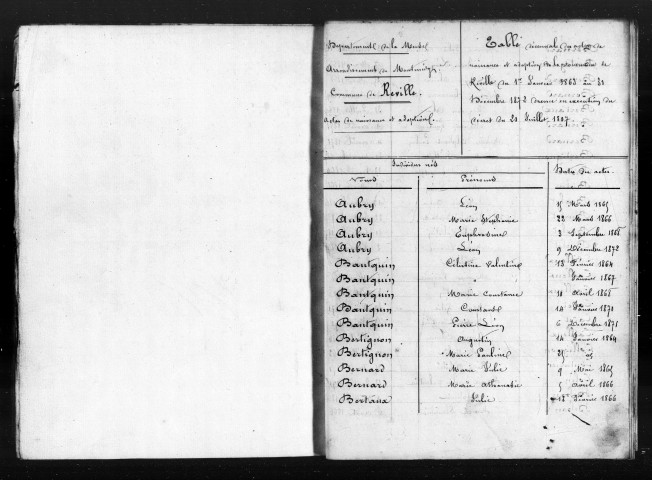 Département de la Meuse
Arrondissement de Montmédy
Commune de Réville.
Actes de naissance et adoptions.
Table décennale des actes de
naissance et adoption de la commune de
Réville du 1er Janvier 1863 au 31
Décembre 1872 dressée en exécution du
décret du 20 Juillet 1807.
Individus nés
Noms Prénoms Dates des actes
Aubry Léon 15 Mars 1865
Aubry Marie Stéphanie 22 Mars 1866
Aubry Euphrasine 3 Septembre 1868
Aubry Léon 9 Décembre 1872
Bautquin Célestine Valentine 18 Février 1864
Bautquin Janvier 1867
Bautquin Marie Constance 11 Avril 1868
Bautquin Constant 14 Janvier 1871
Bautquin Pierre Léon 6 Décembre 1871
Bertignon Augustin 14 Janvier 1864
Bertignon Marie Pauline
Bernard Marie Julie 9 Mai 1865
Bernard Marie Athanasie 5 Avril 1866
Bertaux Julie 12 Février 1866